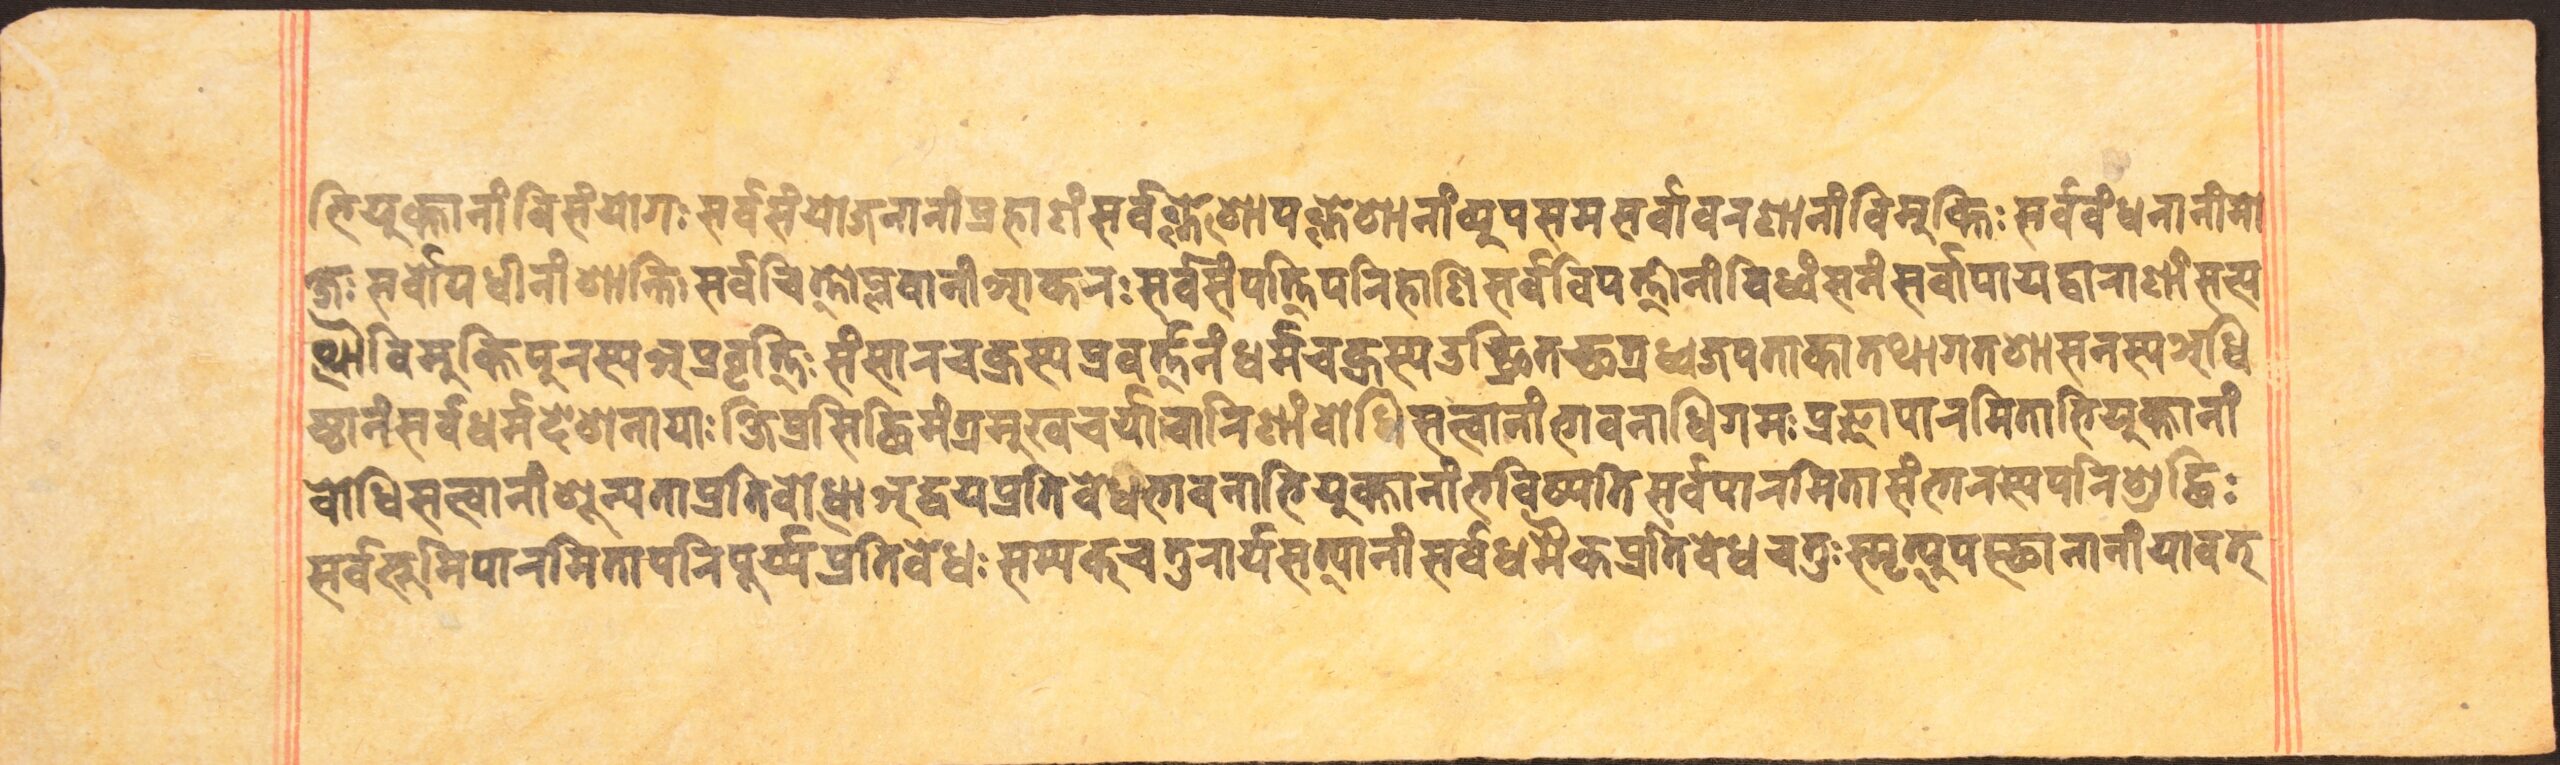 भियुक्तानां विसंयोगः सर्वसंयोजनानां प्रहाणं सर्वक्लेशोपक्लेशानां व्युपसम सर्वावरणानां विमुक्तिः सर्ववंधनानां मो
क्षः सर्वोपधीनां शान्ति सर्वचित्तोप्लवानां आकरः सर्वसंपत्ति परिहाणि सर्वविपत्तीनां विध्वंसनं सर्वापायद्वाराणां सत्प
थो विमुक्तिपुरस्य अप्रवृत्तिः संसारचक्रस्य प्रवर्त्तनं धर्मचक्रस्य उच्छ्रितच्छत्रध्वजपताका तथागतशासनस्य अधि
ष्ठानं सर्वधर्मदेशनायाः क्षिप्रसिद्धिमंत्रमुखचर्याचारिणां वोधिसत्त्वानां भावनाधिगमः प्रज्ञापारमिताभियुक्तानां
वोधिसत्त्वानां शून्यताप्रतिवोधा अद्वयप्रतिवेधभावनाभियुक्तानां भविष्यति सर्वपारमितासंभारस्य परिशुद्धिः
सर्वभूमिपारमितापरिपूर्य्य प्रतिवेधः सम्यक्चतुरार्यसत्यानां सर्वधर्मैकप्रतिवेध चतुःस्मृत्युपस्थानानां यावत्